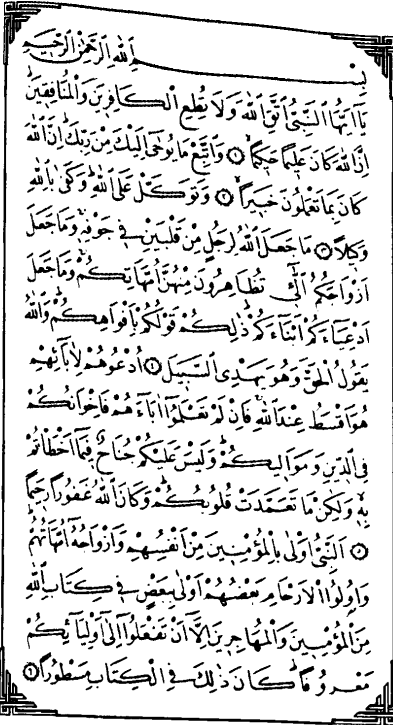 بِسْمِ اللّٰهِ الرَّحْمٰنِ الرَّحِيمِ
يَٓا اَيُّهَا النَّبِيُّ اتَّقِ اللّٰهَ وَلَا تُطِعِ الْكَافِرِينَ وَالْمُنَافِقِينَۜ
اِنَّ اللّٰهَ كَانَ عَلِيمًا حَكِيمًاۙ ﴿١﴾ وَاتَّبِعْ مَا يُوحٰٓى اِلَيْكَ مِنْ رَبِّكَۜ اِنَّ اللّٰهَ
كَانَ بِمَا تَعْمَلُونَ خَبِيرًاۙ ﴿٢﴾ وَتَوَكَّلْ عَلَى اللّٰهِۜ وَكَفٰى بِاللّٰهِ
وَكِيلًا ﴿٣﴾ مَا جَعَلَ اللّٰهُ لِرَجُلٍ مِنْ قَلْبَيْنِ فِي جَوْفِهِۚ وَمَا جَعَلَ
اَزْوَاجَكُمُ الّٰٓـِٔي تُظَاهِرُونَ مِنْهُنَّ اُمَّهَاتِكُمْۚ وَمَا جَعَلَ
اَدْعِيَٓاءَكُمْ اَبْنَٓاءَكُمْۜ ذٰلِكُمْ قَوْلُكُمْ بِاَفْوَاهِكُمْۜ وَاللّٰهُ
يَقُولُ الْحَقَّ وَهُوَ يَهْدِي السَّبِيلَ ﴿٤﴾ اُدْعُوهُمْ لِاٰبَٓائِهِمْ
هُوَ اَقْسَطُ عِنْدَ اللّٰهِۚ فَاِنْ لَمْ تَعْلَمُٓوا اٰبَٓاءَهُمْ فَاِخْوَانُكُمْ
فِي الدِّينِ وَمَوَالِيكُمْۜ وَلَيْسَ عَلَيْكُمْ جُنَاحٌ فِيمَٓا اَخْطَأْتُمْ
بِهِۙ وَلٰكِنْ مَا تَعَمَّدَتْ قُلُوبُكُمْۜ وَكَانَ اللّٰهُ غَفُورًا رَحِيمًا
﴿٥﴾ اَلنَّبِيُّ اَوْلٰى بِالْمُؤْمِنِينَ مِنْ اَنْفُسِهِمْ وَاَزْوَاجُهُٓ اُمَّهَاتُهُمْۜ
وَاُو۬لُوا الْاَرْحَامِ بَعْضُهُمْ اَوْلٰى بِبَعْضٍ فِي كِتَابِ اللّٰهِ
مِنَ الْمُؤْمِنِينَ وَالْمُهَاجِرِينَ اِلَّٓا اَنْ تَفْعَلُٓوا اِلٰٓى اَوْلِيَٓائِكُمْ
مَعْرُوفًاۜ كَانَ ذٰلِكَ فِي الْكِتَابِ مَسْطُورًا ﴿٦﴾